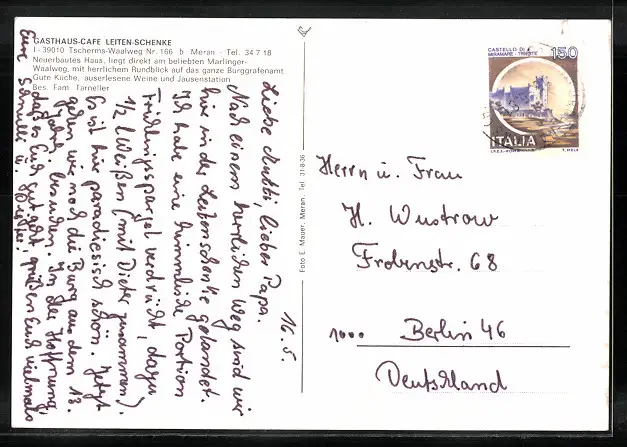 GASTHAUS-CAFE LEITEN-SCHENKE
I - 39010 Tscherms-Waalweg Nr. 166 b Meran - Tel. 34 7 18
Neuerbautes Haus, liegt direkt am beliebten Marlinger-
Waalweg, mit herrlichem Rundblick auf das ganze Burggrafenamt
Gute Küche, auserlesene Weine und Jausenstation
Bes. Fam. Tarneller
16. 5.
Liebe Mutti, lieber Papa.
Nach einem herrlichen Weg sind wir
hier in der Leitenschenke gelandet.
Ich habe eine himmlische Portion
Frühlingsspargel verdrückt, dazu
1/2 l Weißen (mit Dieter zusammen).
Es ist hier paradiesisch schön. Jetzt
gehen wir noch die Burg aus dem 12.
besuchen. In der Hoffnung,
daß es Euch gut geht, grüßen Euch vielmals
Eure
Foto E. Mauer, Meran, Tel. 31-8-36
CASTELLO DI
MIRAMARE - TRIESTE
150
ITALIA
Herrn u. Frau
H. Wustrow
Frobenstr. 68
1000 Berlin 46
Deutschland